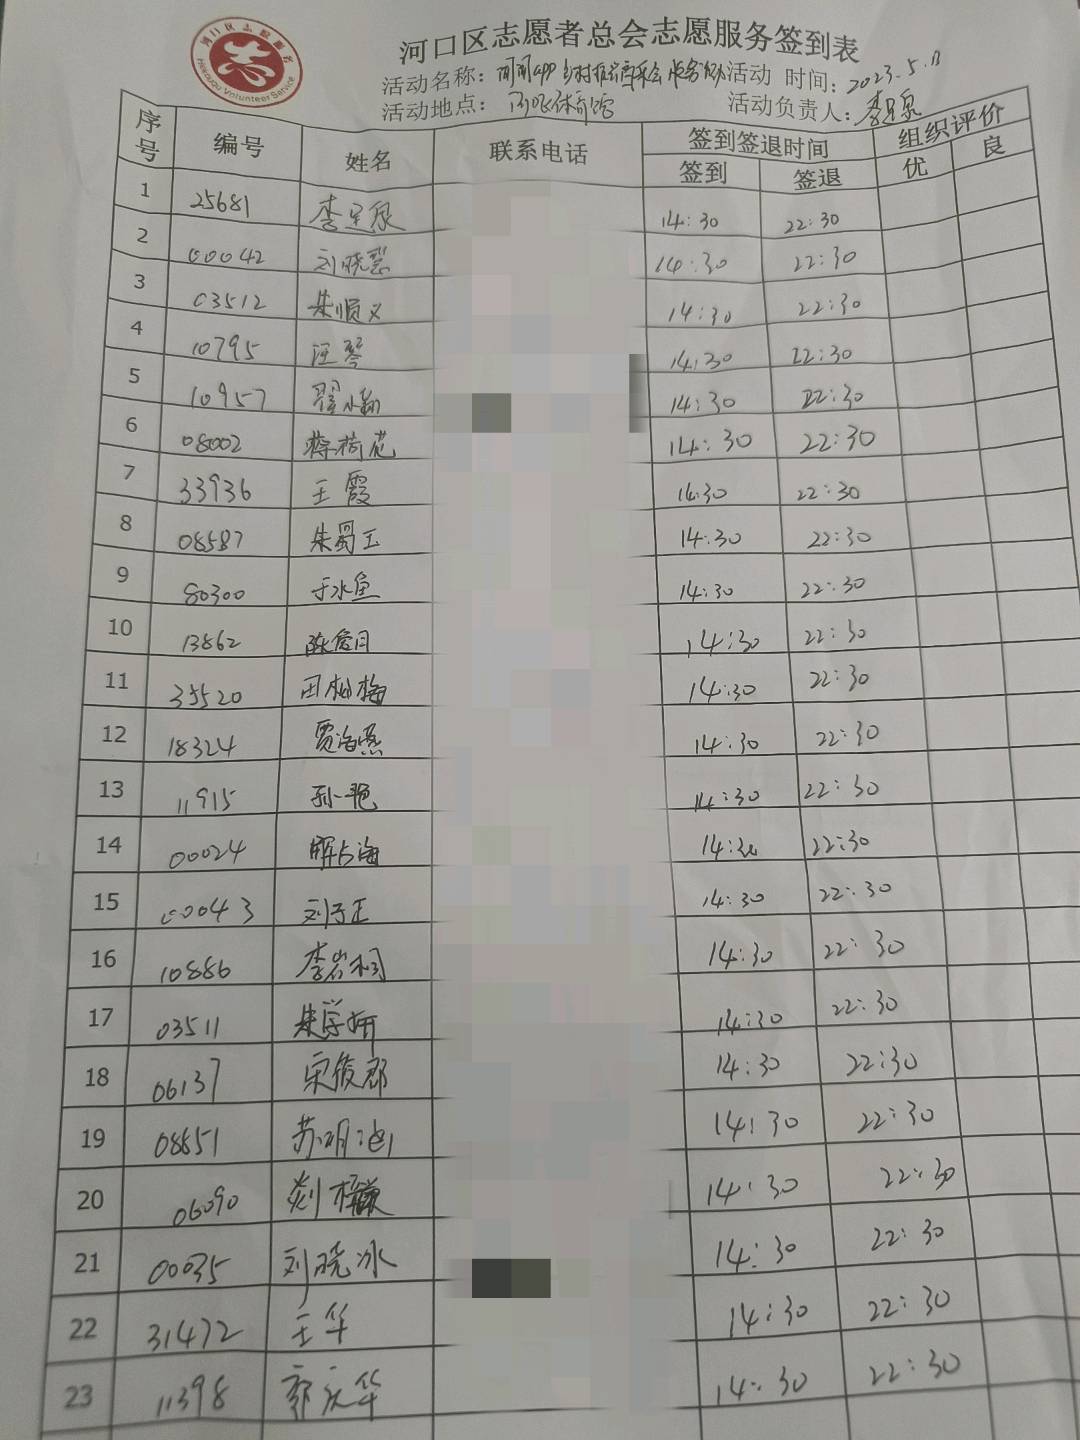 河口区志愿者总会志愿服务签到表
河口区志愿服务者
Hekouqu Volunteer Service
活动名称: 活动 时间: 2023.5.13
活动地点: 活动负责人:
序号 编号 姓名 联系电话 签到签退时间 组织评价
签到 签退 优 良
1 25681 14:30 22:30
2 00042 刘晓慧 14:30 22:30
3 03512 朱顺义 14:30 22:30
4 10795 汪琴 14:30 22:30
5 10957 14:30 22:30
6 08002 蒋荷花 14:30 22:30
7 33936 王霞 14:30 22:30
8 08587 朱蜀玉 14:30 22:30
9 80300 于水鱼 14:30 22:30
10 13862 陈爱日 14:30 22:30
11 35520 田梅 14:30 22:30
12 18324 贾海燕 14:30 22:30
13 11915 孙艳 14:30 22:30
14 00024 解占海 14:30 22:30
15 00043 刘子正 14:30 22:30
16 10886 李岩桐 14:30 22:30
17 03511 朱学妍 14:30 22:30
18 06137 宋俊郡 14:30 22:30
19 08651 苏明池 14:30 22:30
20 06090 14:30 22:30
21 00035 刘晓冰 14:30 22:30
22 31472 王华 14:30 22:30
23 11398 郭庆华 14:30 22:30